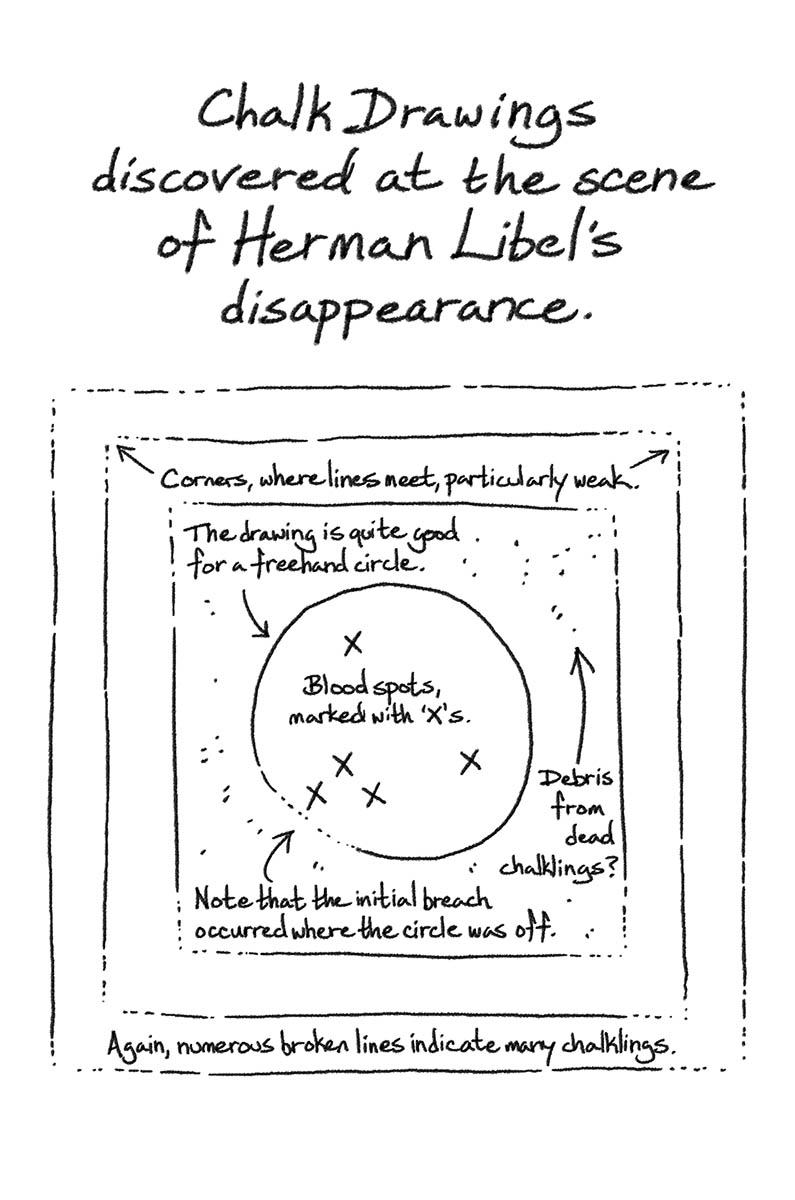 Chalk Drawings
discovered at the scene
of Herman Libel's
disappearance.
Corners, where lines meet, particularly weak.
The drawing is quite good
for a freehand circle.
Blood spots,
marked with 'X's.
Debris
from
dead
chalklings?
Note that the initial breach
occurred where the circle was off.
Again, numerous broken lines indicate many chalklings.